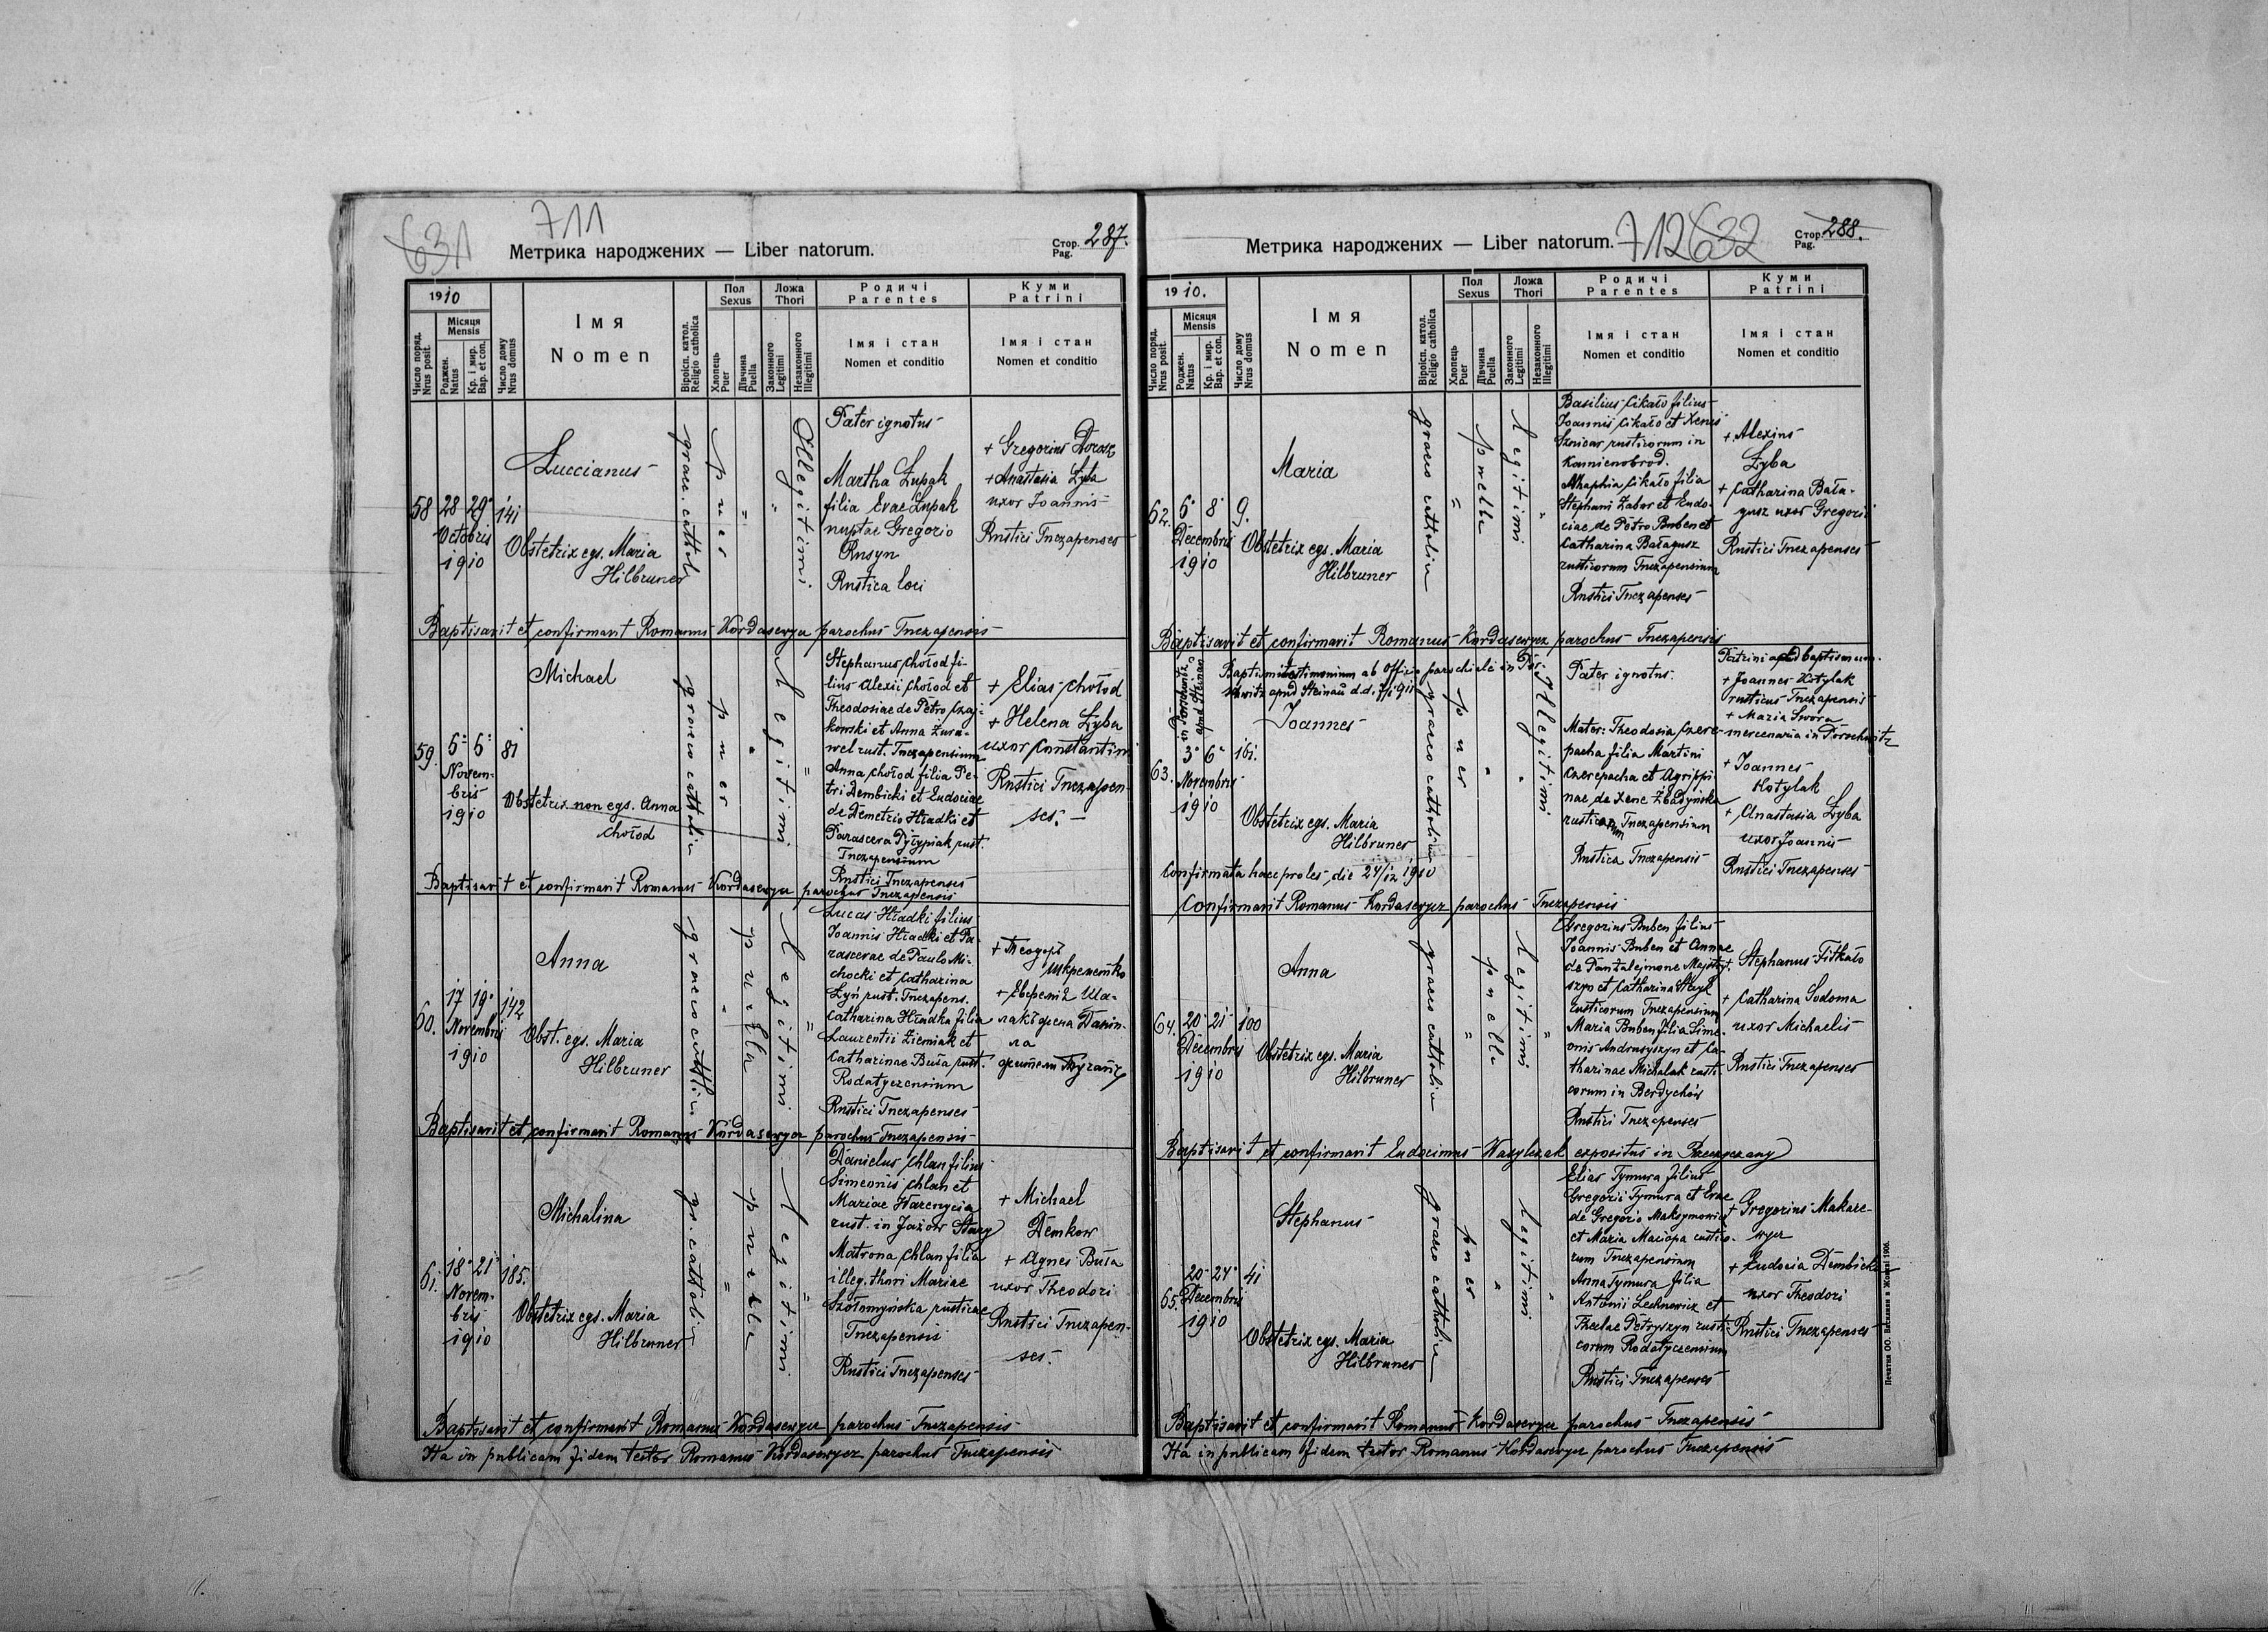 631
711
Метрика народжених — Liber natorum.
Стор. 287.
Pag.
1910
Число поряд.
Nrus posit.
Місяця
Mensis
Роджен.
Natus
Кр. і мир.
Bap. et con.
Число дому
Nrus domus
Імя
Nomen
Віроісп. катол.
Religio catholica
Пол
Sexus
Хлопець
Puer
Дівчина
Puella
Ложа
Thori
Законного
Legitimi
Незаконного
Illegitimi
Родичі
Parentes
Імя і стан
Nomen et conditio
Куми
Patrini
Імя і стан
Nomen et conditio
58 28 29 141
Octobris
1910
Luccianus
Obstetrix egs. Maria
Hilbruner
graec. cathol.
puer
"
"
Illegitimi
Pater ignotus
Martha Łupak
filia Evae Łupak
nuptae Gregorio
Rusyn
Rustica loci
+ Gregorius Dorosz
+ Anastasia Zyba
uxor Joannis
Rustici Tuczapenses
Baptisavit et confirmavit Romanus Kordasewycz parochus Tuczapensis
59. 6 6 81
Novem-
bris
1910
Michael
Obstetrix non egs. Anna
Chołod
graeco catholica
puer
"
Legitimi
"
Stephanus Chołod fi-
lius Alexii Chołod et
Theodosiae de Petro Czaj-
kowski et Anna Żura-
wel rust. Tuczapensium
Anna Chołod filia Pe-
tri Dembicki et Eudociae
de Demetrio Hładki et
Parascera Pyłypiak rust.
Tuczapensium
Rustici Tuczapenses
+ Elias Chołod
+ Helena Zyba
uxor Constantini
Rustici Tuczapen-
ses. —
Baptisavit et confirmavit Romanus Kordasewycz parochus Tuczapensis
60. 17 19 142
Novembris
1910
Anna
Obst. egs. Maria
Hilbruner
graeco catholica
"
puella
Legitimi
"
Lucas Hładki filius
Joannis Hładki et Pa-
rascevae de Paulo Mi-
chocki et Catharina
Łyń rust. Tuczapens.
Catharina Hładka filia
Laurentii Ziemiak et
Catharinae Buła rust.
Rodatyczensium
Rustici Tuczapenses
+ Теодоръ
+
Baptisavit et confirmavit Romanus Kordasewycz parochus Tuczapensis
61. 18 21 185.
Novem-
bris
1910
Michalina
Obstetrix egs. Maria
Hilbruner
gr. catholica
"
puella
Legitimi
"
Danielus Chlan filius
Simeonis Chlan et
Mariae Harenycia
rust. in Jazów Stary
Matrona Chlan filia
illeg. thori Mariae
Szołomyńska rusticae
Tuczapensis
Rustici Tuczapenses
+ Michael
Demkow
+ Agnes Buła
uxor Theodori
Rustici Tuczapen-
ses.
Baptisavit et confirmavit Romanus Kordasewycz parochus Tuczapensis
Ita in publicam fidem testor Romanus Kordasewycz parochus Tuczapensis
Метрика народжених — Liber natorum.
712 632
Стор. 288.
Pag.
1910.
Число поряд.
Nrus posit.
Місяця
Mensis
Роджен.
Natus
Кр. і мир.
Bap. et con.
Число дому
Nrus domus
Імя
Nomen
Віроісп. катол.
Religio catholica
Пол
Sexus
Хлопець
Puer
Дівчина
Puella
Ложа
Thori
Законного
Legitimi
Незаконного
Illegitimi
Родичі
Parentes
Імя і стан
Nomen et conditio
Куми
Patrini
Імя і стан
Nomen et conditio
62. 6 8 9.
Decembris
1910
Maria
Obstetrix egs. Maria
Hilbruner
graeco catholica
"
puella
Legitimi
"
Basilius Cikało filius
Joannis Cikało et Xenis
rusticorum in
Kamienobrod.
Cikało filia
Stephani Zabor et Eudo-
ciae de Petro Buben et
Catharina Bałagusz
rusticorum Tuczapensium
Rustici Tuczapenses
+ Alexius
Zyba
+ Catharina Bała-
gusz uxor Gregorii
Rustici Tuczapenses
Baptisavit et confirmavit Romanus Kordasewycz parochus Tuczapensis
in Porschwitz
apud Steinau
Baptismi testimonium ab Officio parochiali in Por-
schwitz apud Steinau d.d.
63. 3 6 161.
Novembris
1910
Joannes
Obstetrix egs. Maria
Hilbruner
graeco catholica
puer
"
"
Illegitimi
Pater ignotus.
Mater: Theodosia Czere-
pacha filia Martini
Czerepacha et Agrippi-
nae de Xene
rusticorum Tuczapensium
Rustica Tuczapensis
Patrini apud baptismum.
+ Joannes Kotylak
rusticus Tuczapensis
+ Maria Swora
mercenaria in Porschwitz
+ Joannes
Kotylak
+ Anastasia Zyba
uxor Joannis
Rustici Tuczapenses
Confirmata haec proles, die 24/12 1910
Confirmavit Romanus Kordasewycz parochus Tuczapensis
64. 20 21 100
Decembris
1910
Anna
Obstetrix egs. Maria
Hilbruner
graeco catholica
"
puella
Legitimi
"
Gregorius Buben filius
Joannis Buben et Annae
de Pantalejmone
et Catharina
rusticorum Tuczapensium
Maria Buben filia Sime-
onis Andrusyszyn et Ca-
tharinae Michalak rusti-
corum in Berdychów
Rustici Tuczapenses
+ Stephanus Fitkało
+ Catharina Sodoma
uxor Michaelis
Rustici Tuczapenses
Baptisavit et confirmavit Eudocimus expositus in
65. 20 24 41
Decembris
1910
Stephanus
Obstetrix egs. Maria
Hilbruner
graeco catholica
puer
"
Legitimi
"
Elias Tymura filius
Gregorii Tymura et Evae
de Gregorio Maksymowicz
et Maria Maciopa rustico-
rum Tuczapensium
Anna Tymura filia
Antonii Lechnowicz et
Theclae Petryszyn rusti-
corum Rodatyczensium
Rustici Tuczapenses
+ Gregorius Makare-
wycz
+ Eudocia Dembicka
uxor Theodori
Rustici Tuczapenses
Baptisavit et confirmavit Romanus Kordasewycz parochus Tuczapensis
Ita in publicam fidem testor Romanus Kordasewycz parochus Tuczapensis
Печатня ОО. Василиян в Жовкві 1906.